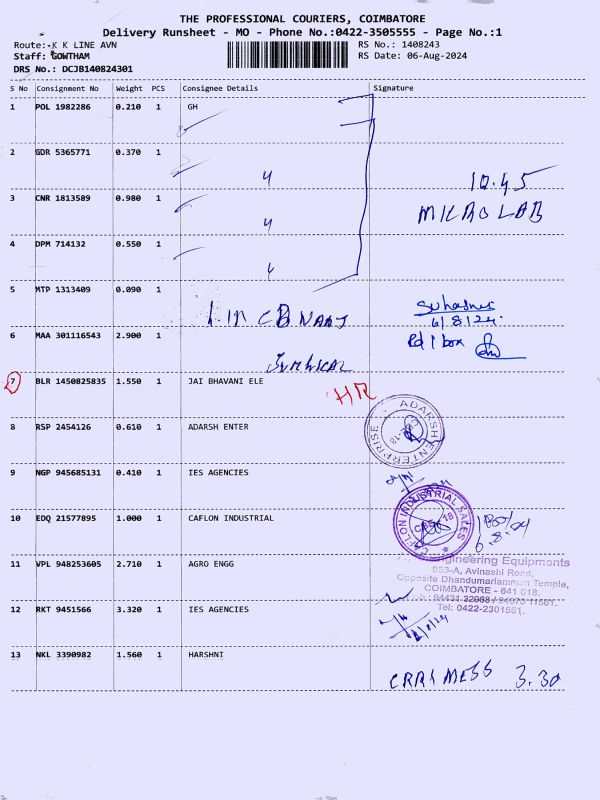 THE PROFESSIONAL COURIERS, COIMBATORE
Delivery Runsheet - MO - Phone No.:0422-3505555 - Page No.:1
Route: K K LINE AVN
RS No.: 1408243
Staff: GOWTHAM
RS Date: 06-Aug-2024
DRS No.: DCJB140824301
S No Consignment No Weight PCS Consignee Details Signature
1 POL 1982286 0.210 1 GH
2 GDR 5365771 0.370 1
10.45
3 CNR 1813589 0.980 1
MICRO LAB
4 DPM 714132 0.550 1
5 MTP 1313409 0.090 1
6/8/24
6 MAA 301116543 2.900 1
Rd 1 box
Surgical
7 BLR 1450825835 1.550 1 JAI BHAVANI ELE
HR
8 RSP 2454126 0.610 1 ADARSH ENTER
ADARSH ENTERPRISE
CBE-18
9 NGP 945685131 0.410 1 IES AGENCIES
10 EDQ 21577895 1.000 1 CAFLON INDUSTRIAL
CAFLON INDUSTRIAL SALES
11 VPL 948253605 2.710 1 AGRO ENGG
Engineering Equipments
953-A, Avinashi Road,
Opposite Dhandumariamman Temple,
COIMBATORE - 641 018.
Tel: 0422-2301561.
12 RKT 9451566 3.320 1 IES AGENCIES
13 NKL 3390982 1.560 1 HARSHNI
3.30